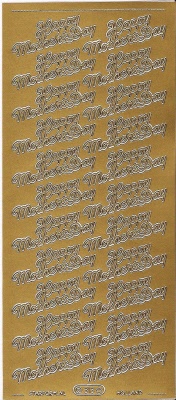 Happy Happy
Mother's Day Mother's Day
Happy Happy
Mother's Day Mother's Day
Happy Happy
Mother's Day Mother's Day
Happy Happy
Mother's Day Mother's Day
Happy Happy
Mother's Day Mother's Day
Happy Happy
Mother's Day Mother's Day
Happy Happy
Mother's Day Mother's Day
Happy Happy
Mother's Day Mother's Day
Happy Happy
Mother's Day Mother's Day
Happy Happy
Mother's Day Mother's Day
Happy Happy
Mother's Day Mother's Day